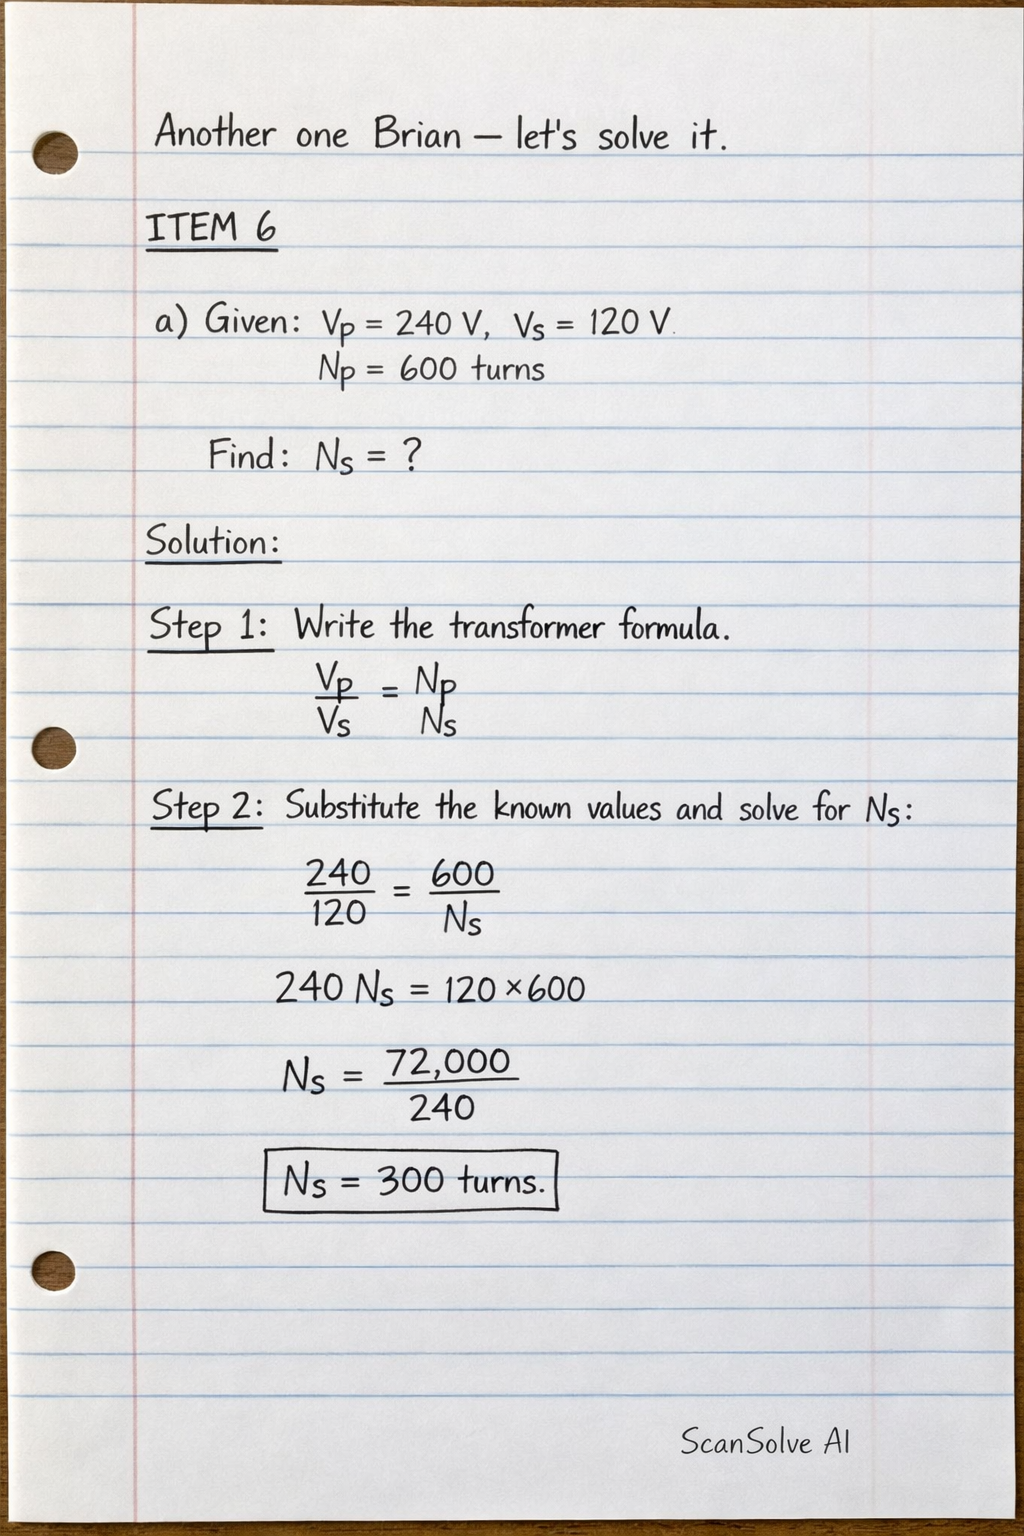 Another one Brian — let's solve it.
ITEM 6
a) Given: Vp = 240 V, Vs = 120 V.
Np = 600 turns
Find: Ns = ?
Solution:
Step 1: Write the transformer formula.
Vp/Vs = Np Ns
Step 2: Substitute the known values and solve for Ns:
240/120 = 600/Ns
240 Ns = 120 × 600
Ns = 72,000/240
Ns = 300 turns.
ScanSolve AI